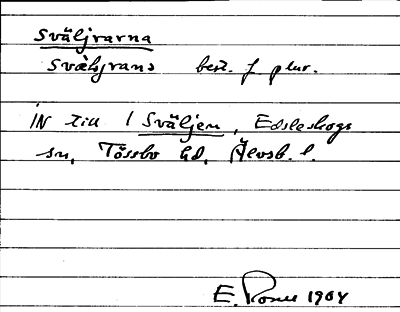 Sväljrarna
Sväljrans best. f. plur.
IN till 1 Sväljen, Edsleskogs
sn, Tössbo hd, Älvsb. l.
E. 1964